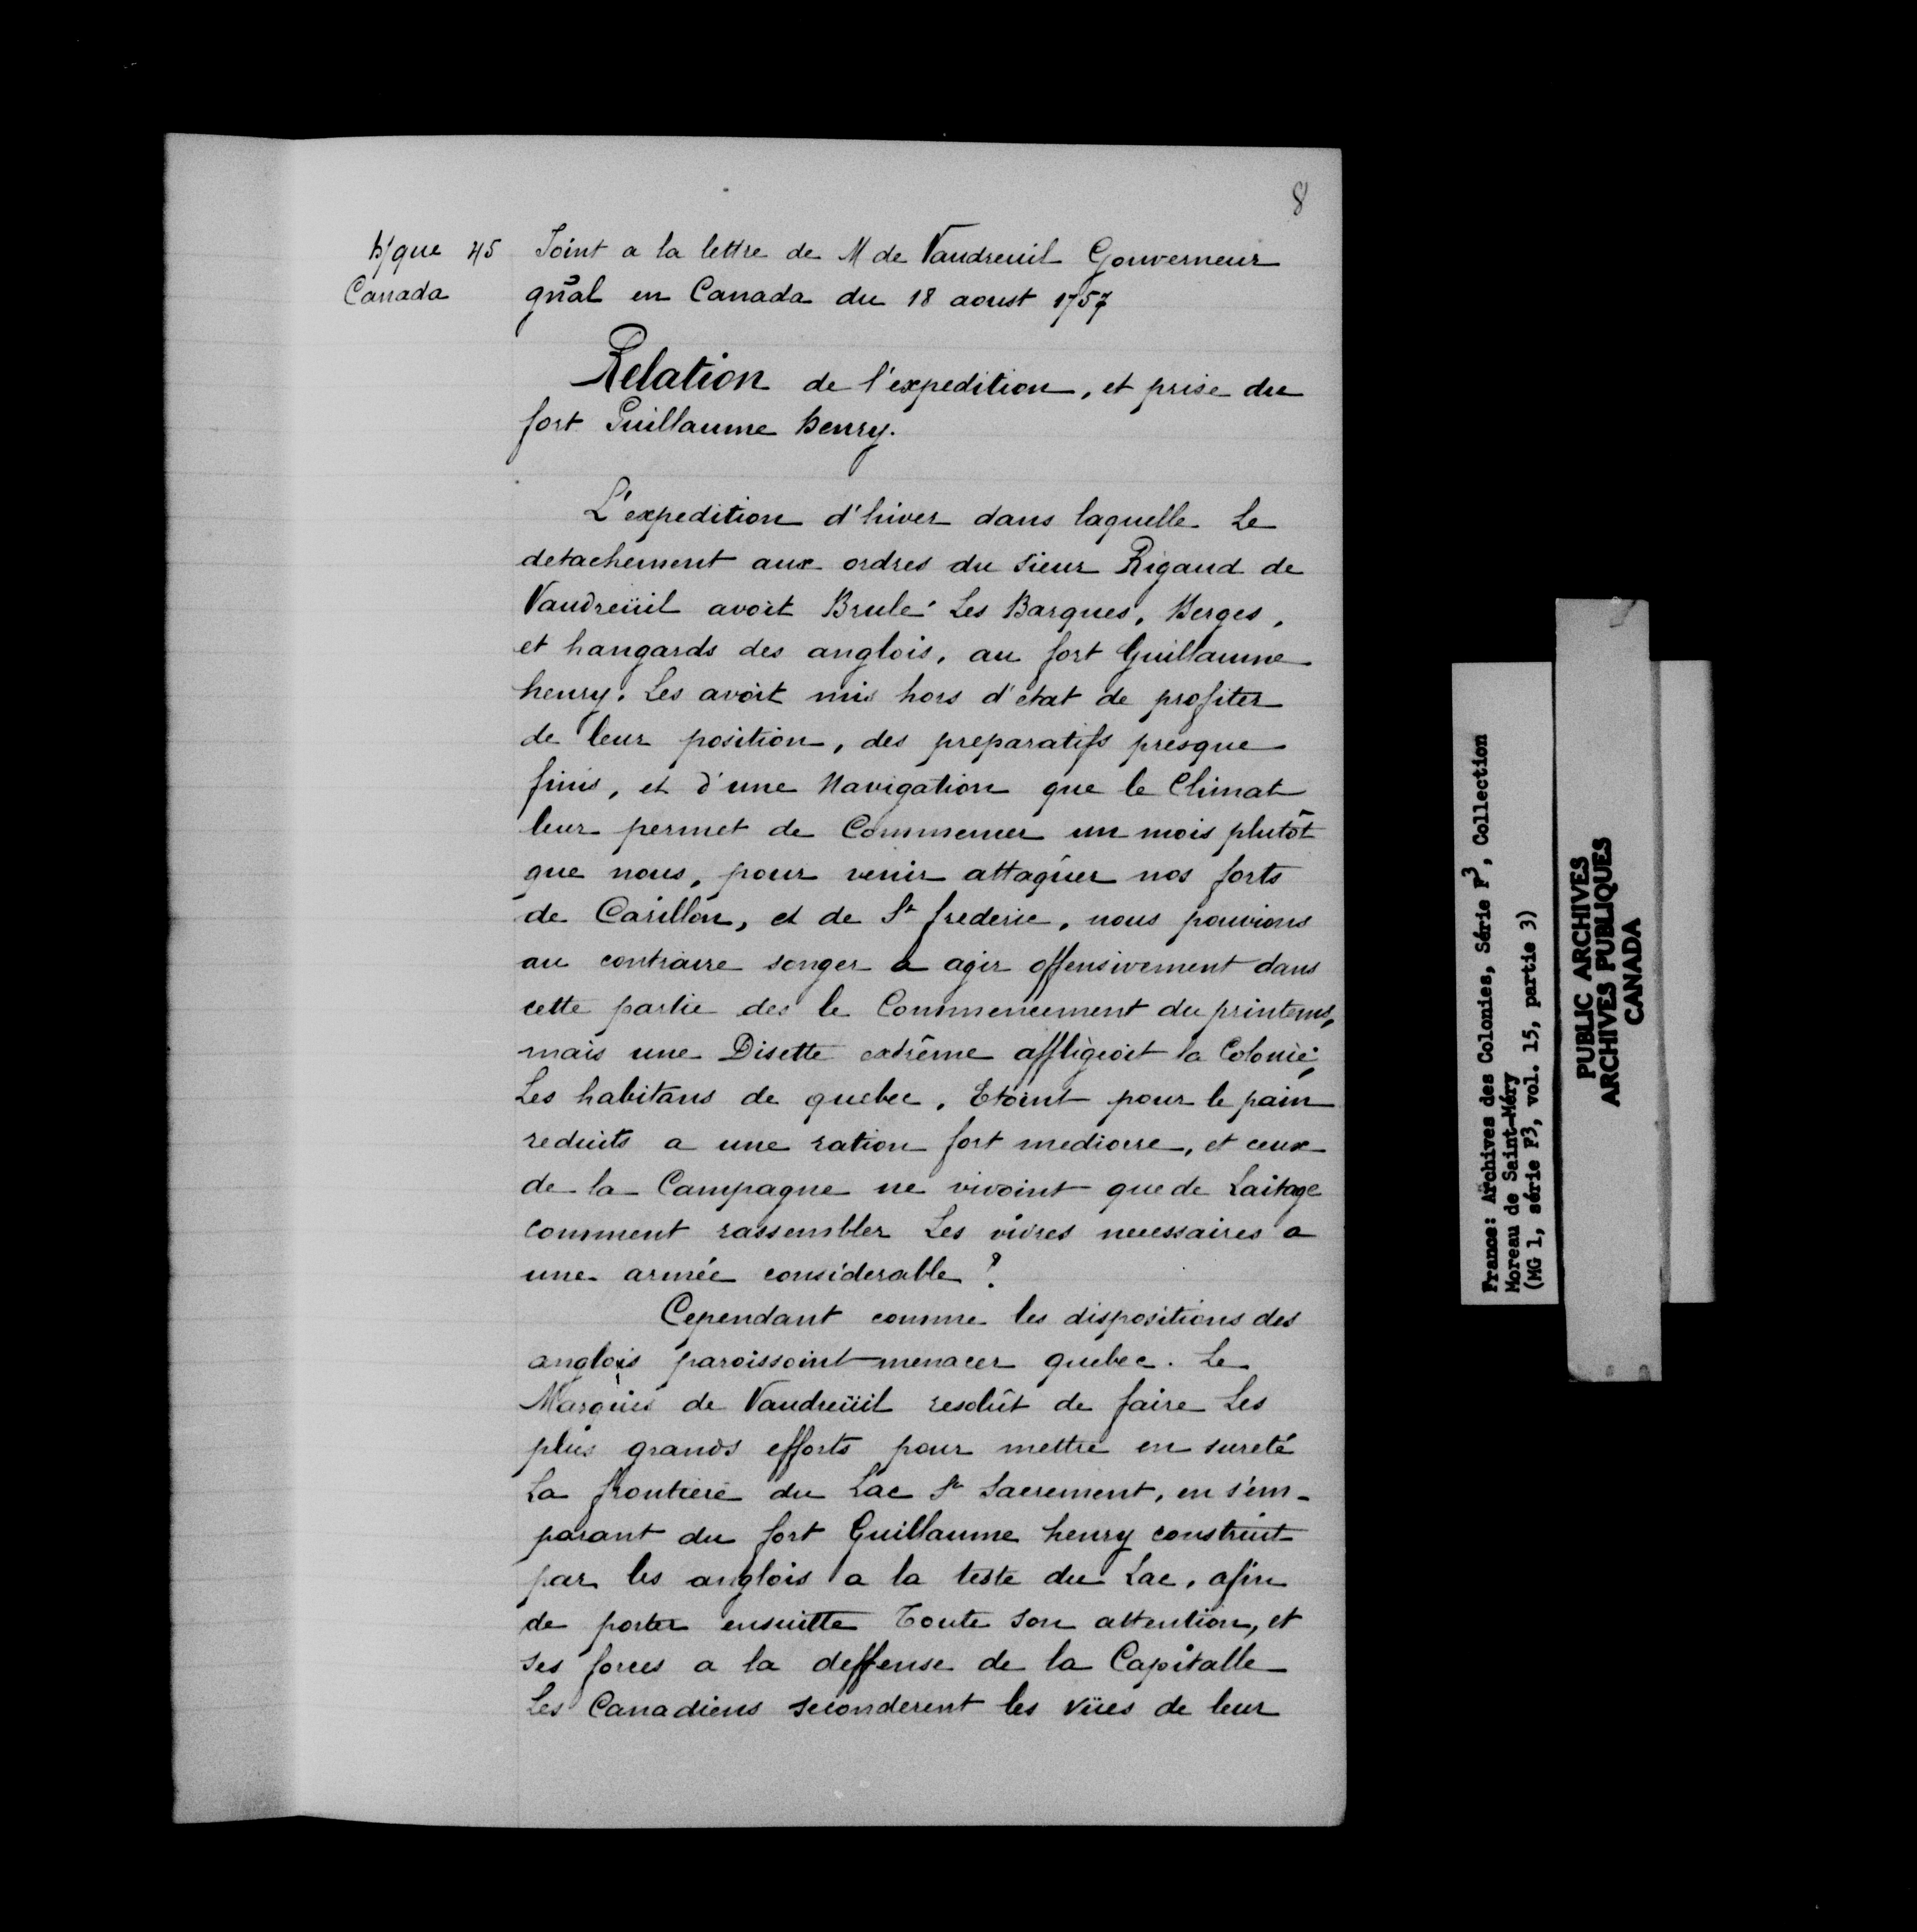 8
h/que 45 Joint a la lettre de M de Vaudreuil Gouverneur
Canada gñal en Canada du 18 aoust 1757
Relation de l'expedition, et prise du
fort Guillaume henry.
L'expedition d'hiver dans laquelle Le
detachement aux ordres du sieur Rigaud de
Vaudreüil avoit Brulé Les Barques, Berges,
et hangards des anglois, au fort Guillaume
henry, Les avoit mis hors d'état de profiter
de leur position, des preparatifs presque
finis, et d'une Navigation que le Climat
leur permet de Commencer un mois plutôt
que nous, pour venir attaquer nos forts
de Carillon, et de St frederic, nous pouvions
au contraire songer a agir offensivement dans
cette partie des le Commencement du printems,
mais une Disette extrême affligeoit la Colonie;
Les habitans de quebec, Etoint pour le pain
reduits a une ration fort mediocre, et ceux
de la Campagne ne vivoint que de Laitage
comment rassembler Les vivres necessaires a
une armée considerable ?
Cependant comme les dispositions des
anglois paroissoint menacer quebec. Le
Marquis de Vaudreüil resolût de faire Les
plus grands efforts pour mettre en sureté
La frontiere du Lac St Sacrement, en s'em-
parant du fort Guillaume henry construit
par les anglois a la teste du Lac, afin
de porter ensuitte Toute son attention, et
ses forces a la deffense de la Capitalle
Les Canadiens seconderent les vües de leur
France: Archives des Colonies, Série F3, Collection
Moreau de Saint-Méry
(MG 1, série F3, vol. 15, partie 3)
PUBLIC ARCHIVES
ARCHIVES PUBLIQUES
CANADA